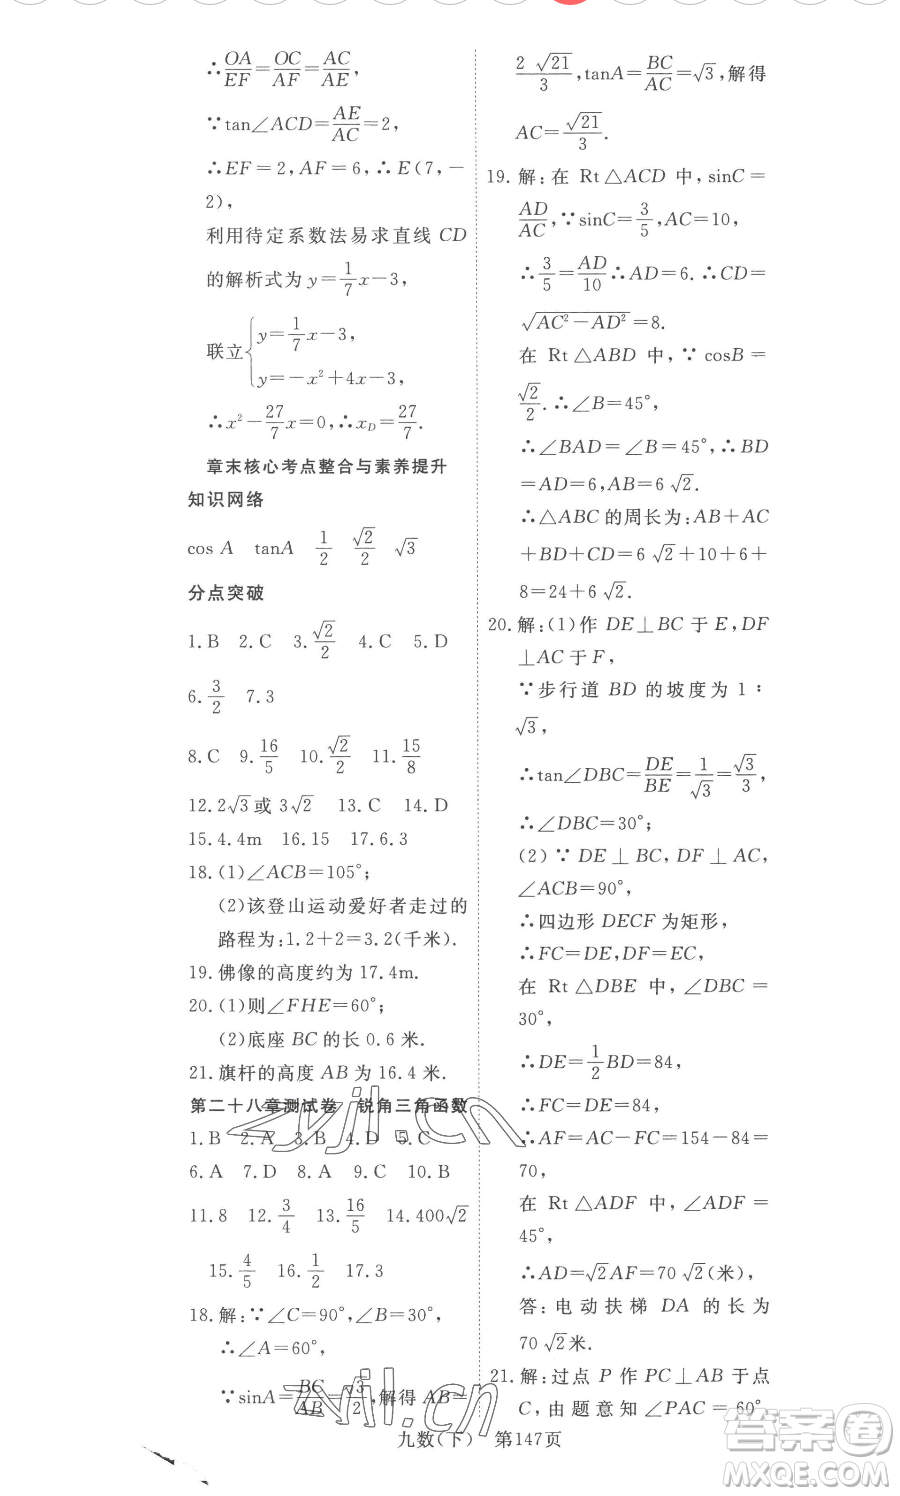 ∴OA/EF=OC/AF=AC/AE,
∵tan∠ACD=AE/AC=2,
∴EF=2,AF=6,∴E(7,-
2),
利用待定系数法易求直线 CD
的解析式为 y=1/7x-3,
联立{y=1/7x-3,
y=-x²+4x-3,
∴x²-27/7x=0,∴x_D=27/7.
章末核心考点整合与素养提升
知识网络
cos A tanA 1/2 √2/2 √3
分点突破
1.B 2.C 3.√2/2 4.C 5.D
6.3/2 7.3
8.C 9.16/5 10.√2/2 11.15/8
12.2√3或 3√2 13.C 14.D
15.4.4m 16.15 17.6.3
18.(1)∠ACB=105°;
(2)该登山运动爱好者走过的
路程为:1.2+2=3.2(千米).
19.佛像的高度约为 17.4m.
20.(1)则∠FHE=60°;
(2)底座 BC 的长 0.6 米.
21.旗杆的高度 AB 为 16.4 米.
第二十八章测试卷 锐角三角函数
1.B 2.A 3.B 4.D 5.C
6.A 7.D 8.A 9.C 10.B
11.8 12.3/4 13.16/5 14.400√2
15.4/5 16.1/2 17.3
18.解:∵∠C=90°,∠B=30°,
∴∠A=60°,
∵sinA=BC/AB=√3/2,解得 AB=
2√21/3,tanA=BC/AC=√3,解得
AC=√21/3.
19.解:在 Rt△ACD 中,sinC=
AD/AC,∵sinC=3/5,AC=10,
∴3/5=AD/10∴AD=6.∴CD=
√(AC²-AD²)=8.
在 Rt△ABD 中,∵cosB=
√2/2.∴∠B=45°,
∴∠BAD=∠B=45°,∴BD
=AD=6,∴AB=6√2.
∴△ABC 的周长为:AB+AC
+BD+CD=6√2+10+6+
8=24+6√2.
20.解:(1)作 DE⊥BC 于 E,DF
⊥AC于 F,
∵步行道 BD 的坡度为 1:
√3,
∴tan∠DBC=DE/BE=1/√3=√3/3,
∴∠DBC=30°;
(2)∵DE⊥BC,DF⊥AC,
∠ACB=90°,
∴四边形 DECF 为矩形,
∴FC=DE,DF=EC,
在 Rt△DBE 中,∠DBC=
30°,
∴DE=1/2BD=84,
∴FC=DE=84,
∴AF=AC-FC=154-84=
70,
在 Rt△ADF 中,∠ADF=
45°,
∴AD=√2AF=70√2(米),
答:电动扶梯 DA 的长为
70√2米.
21.解:过点 P 作 PC⊥AB 于点
C,由题意知∠PAC=60°
九数(下) 第147页
zyjl.cn
zyjl.cn
答案圈
MXQE.COM